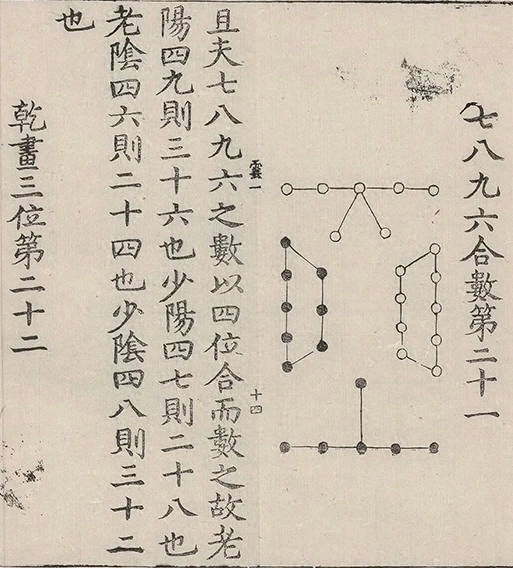 七八九六合數第二十一
雲一
十四
且夫七八九六之數以四位合而數之故老
陽四九則三十六也少陽四七則二十八也
老陰四六則二十四也少陰四八則三十二
也
乾畫三位第二十二